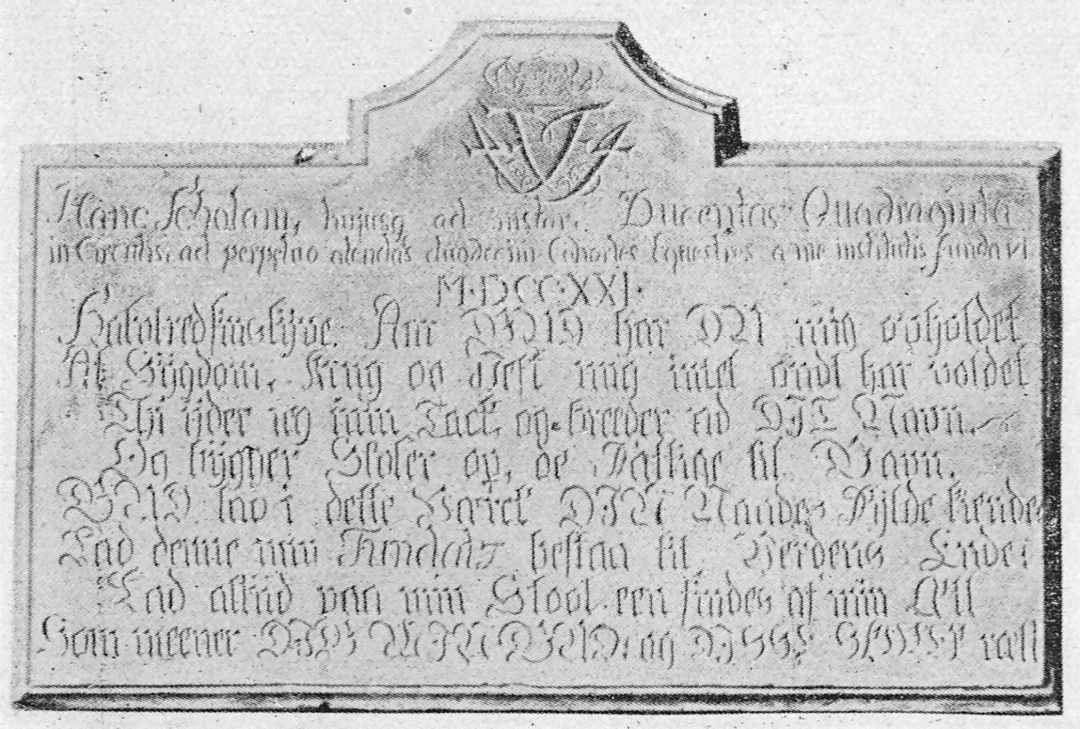 Hanc Scholam, hujusq ad instar. Ducentas Quadraginta
in Circulis, ad perpetuo alendas duodecim Cohortes Equestres a me institutis fundavi.
M·DCC·XXI·
Halvtredsinstyve Aar GUD har DU mig opholdet
At Sÿgdom, Krig og Pest mig intet ondt har voldet
Thi ÿder ieg min Tack, og breeder ud DIT Navn,
Og bÿgger Skoler op, de Fattige til Gavn,
GUD lad i dette Værck DIN Naades Fÿlde kiendes
Lad denne min Fundatz bestaa til Verdens Ende,
Lad altiid paa min Stool een findes af min Æt
Som meener DIG MIN GUD, og DISSE SKOLER rætt